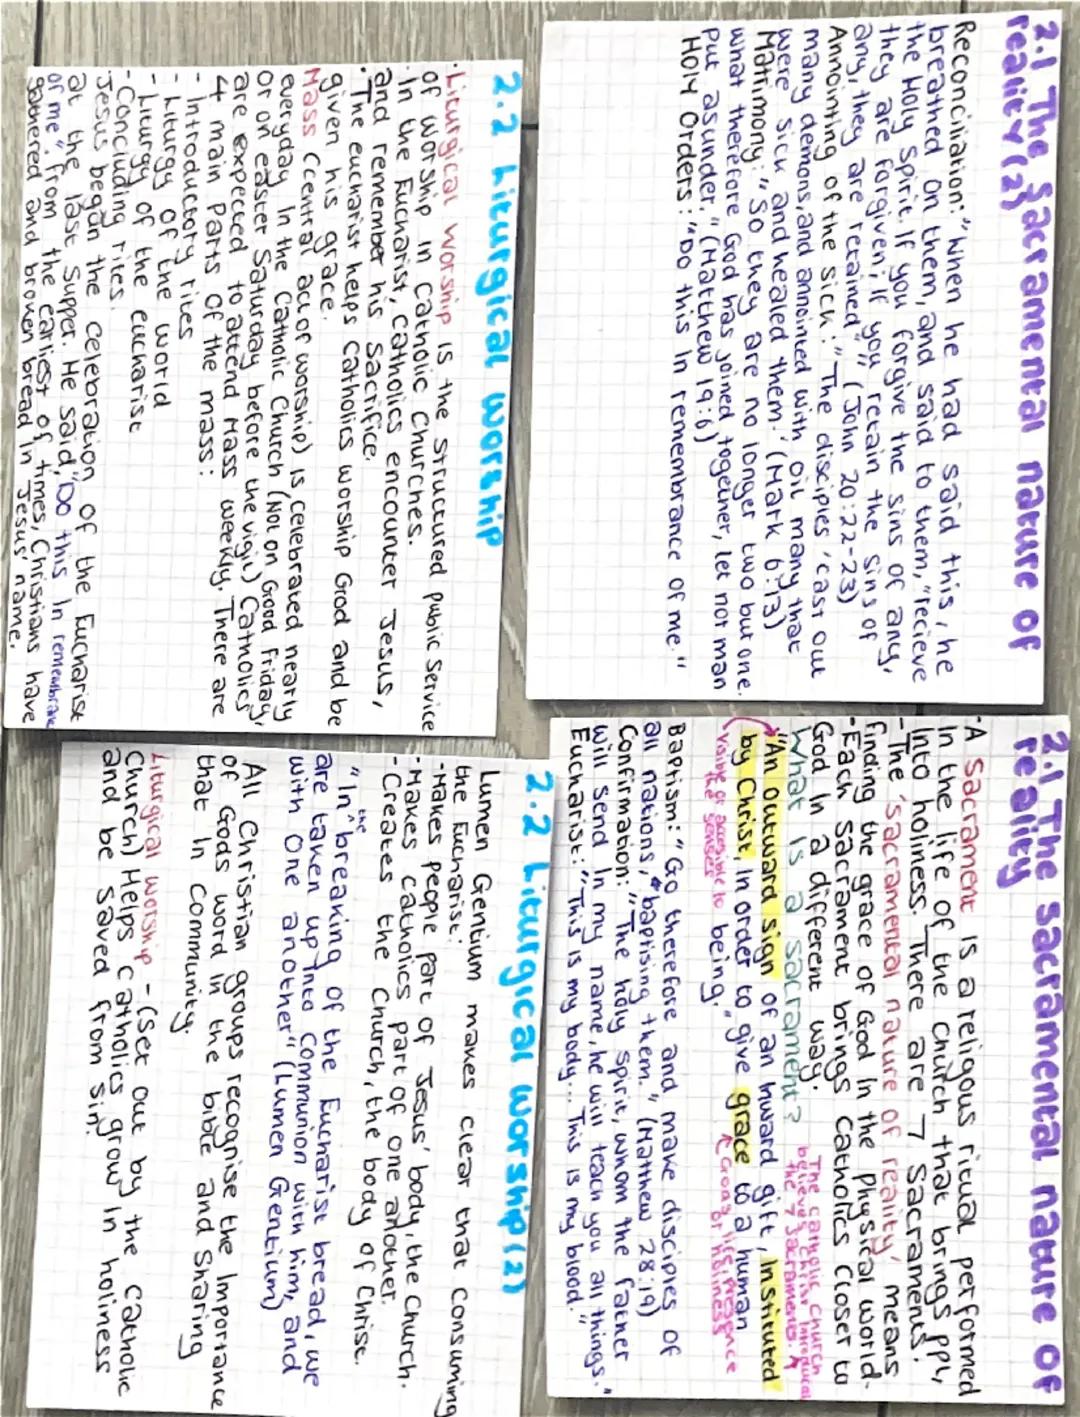 2.1 The sacramental nature of
reality
- A Sacrament is a religous ritual performed
in the life of the church that brings ppl,
into holiness. There are 7 Sacraments.
- The 'sacramental nature of reality' means
finding the grace of God in the physical world.
- Each Sacrament brings Catholics closer to
God in a different way.
What is a sacrament?
The catholic church
believes christ introduced
the 7 sacraments.
"An outward sign of an inward gift, instituted
by Christ, in order to give grace to a human
being."
visible or accessible to
the senses
God's presence
Baptism: "Go therefore and make disciples of
all nations, baptising them." (Matthew 28:19)
Confirmation: "The holy spirit, whom the father
will send in my name, he will teach you all things."
Eucharist: "This is my body... This is my blood."
2.1 The Sacramental nature of
reality (2)
Reconciliation: "When he had said this, he
breathed on them, and said to them, "recieve
the Holy Spirit. If you forgive the sins of any,
they are forgiven; if you retain the sins of
any, they are retained"" (John 20:22-23)
Annointing of the sick: "The disciples 'cast out
many demons, and annointed with oil many that
were sick and healed them.' (Mark 6:13)
Matrimony: "So they are no longer two but one.
what therefore God has joined together, let not man
put asunder." (Matthew 19:6)
Holy Orders: "Do this in remembrance of me."
2.2 Liturgical worship
· Liturgical worship is the structured public service
of worship in catholic Churches.
· In the Eucharist, Catholics encounter Jesus,
and remember his Sacrifice.
· The eucharist helps Catholics worship God and be
given his grace.
Mass (central act of worship) is celebrated nearly
everyday in the Catholic Church (Not on Good Friday,
or on easter Saturday before the vigil) Catholics
are expected to attend Mass weekly. There are
4 main parts of the mass:
- Introductory rites
- Liturgy of the world
- Liturgy of the eucharist
- Concluding rites.
Jesus began the celebration of the Eucharist
at the last supper. He said, "Do this in remembrance
of me". from the earliest of times, Christians have
gathered and broken bread in Jesus' name.
2.2 Liturgical worship (2)
Lumen Gentium makes clear that consuming
the Eucharist:
- Makes people part of Jesus' body, the Church.
- Makes catholics part of one another.
- Creates the Church, the body of Christ.
"In the breaking of the Eucharist bread, we
are taken up into communion with him, and
with one another" (Lumen Gentium)
All Christian groups recognise the importance
of Gods word in the bible and sharing
that in community.
Liturgical worship - (set out by the catholic
Church) Helps catholics grow in holiness
and be saved from sin.